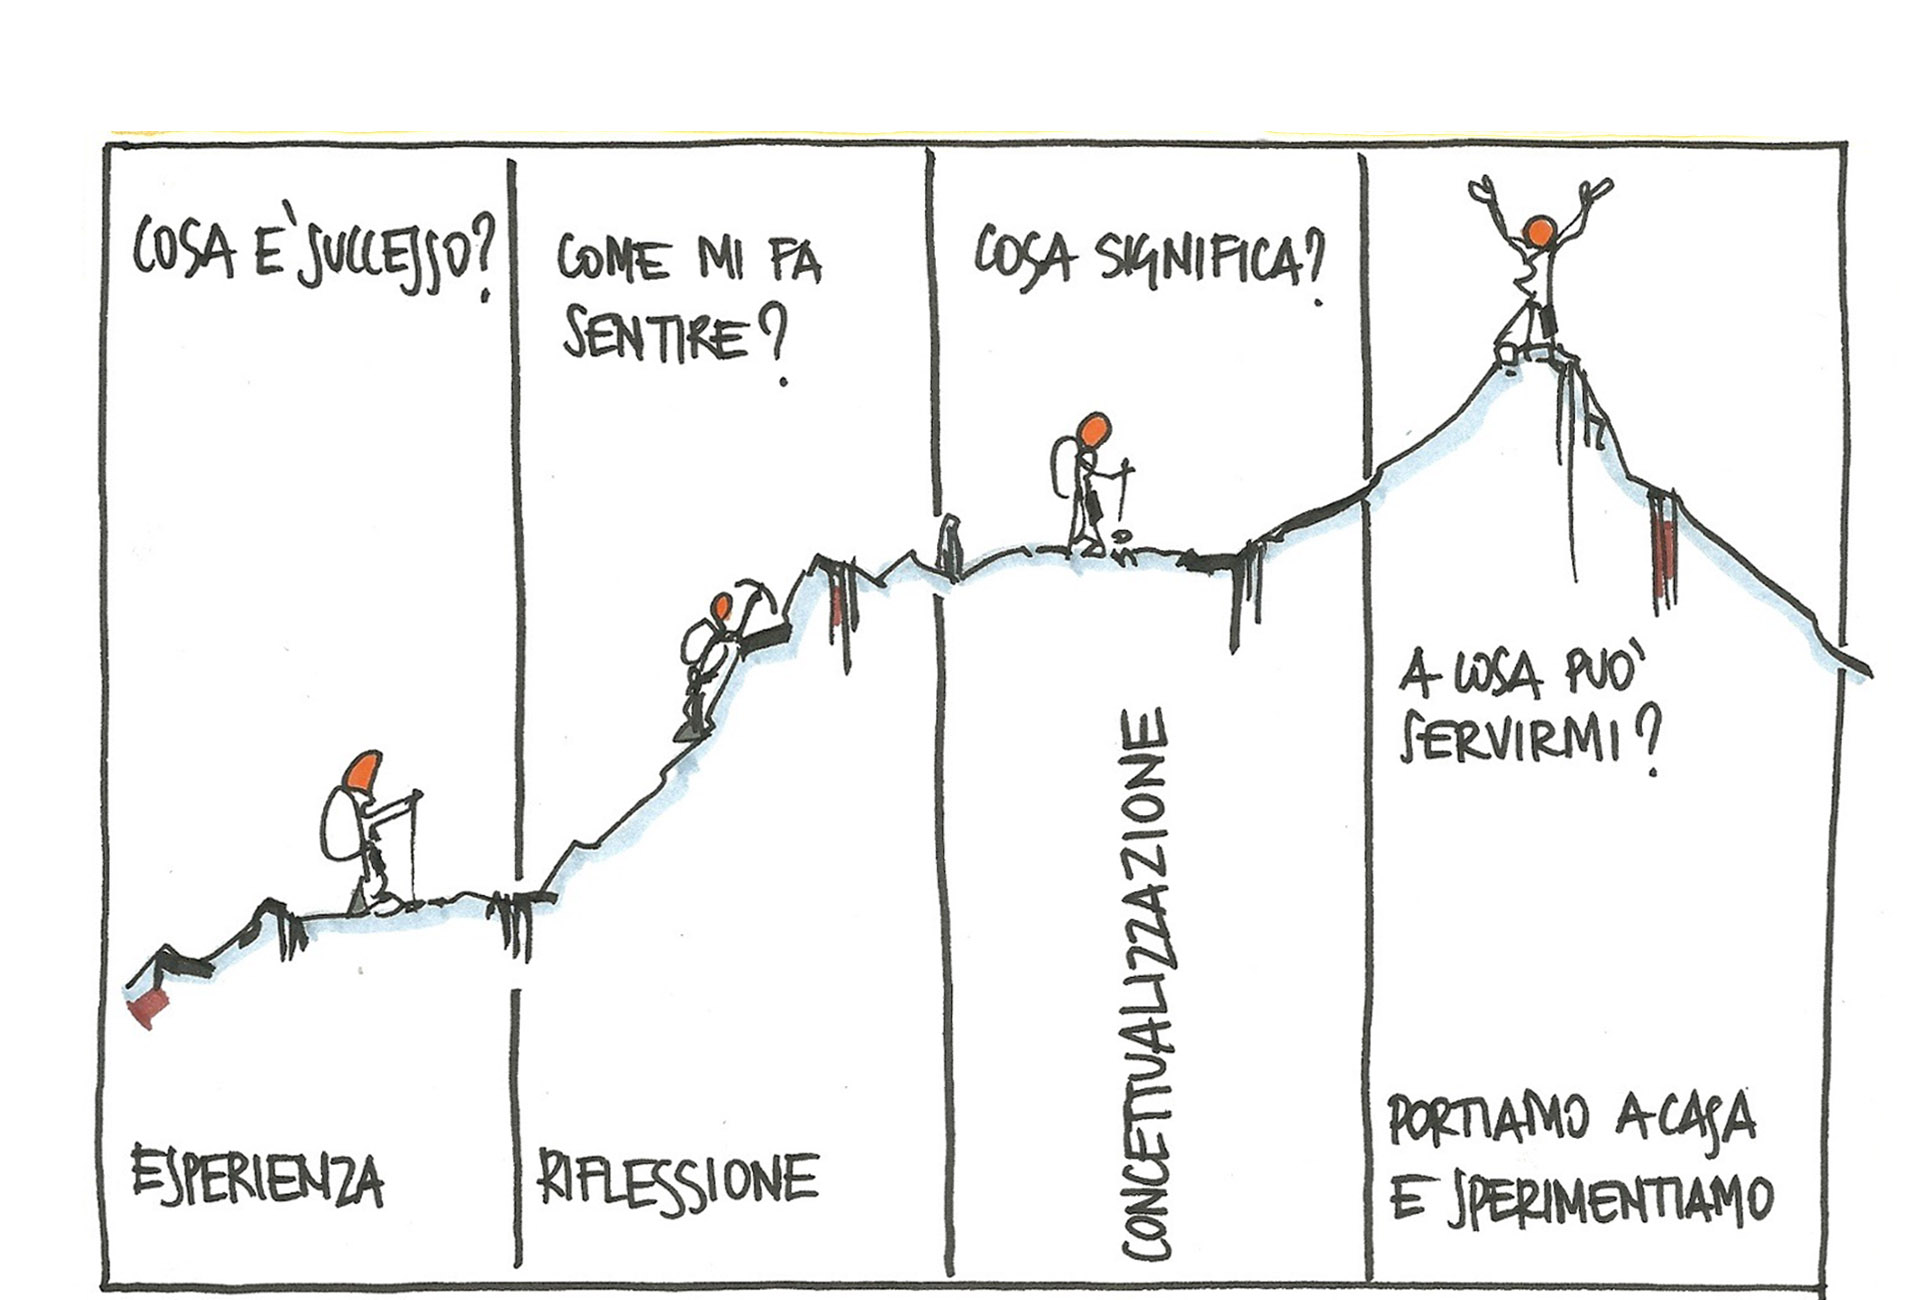 COSA E' SUCCESSO?
ESPERIENZA
COME MI FA
SENTIRE?
RIFLESSIONE
COSA SIGNIFICA?
CONCETTUALIZZAZIONE
A COSA PUO'
SERVIRMI?
PORTIAMO A CASA
E SPERIMENTIAMO